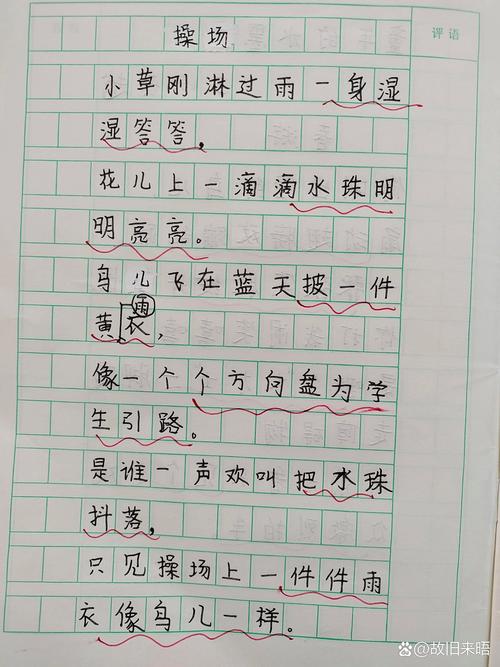 操场
评语
小草刚淋过雨一身湿
湿答答,
花儿上一滴滴水珠明
明亮亮。
鸟儿飞在蓝天披一件
黄雨衣,
像一个个方向盘为学
生引路。
是谁一声欢叫把水珠
抖落,
只见操场上一件件雨
衣像鸟儿一样。
@故旧来晤